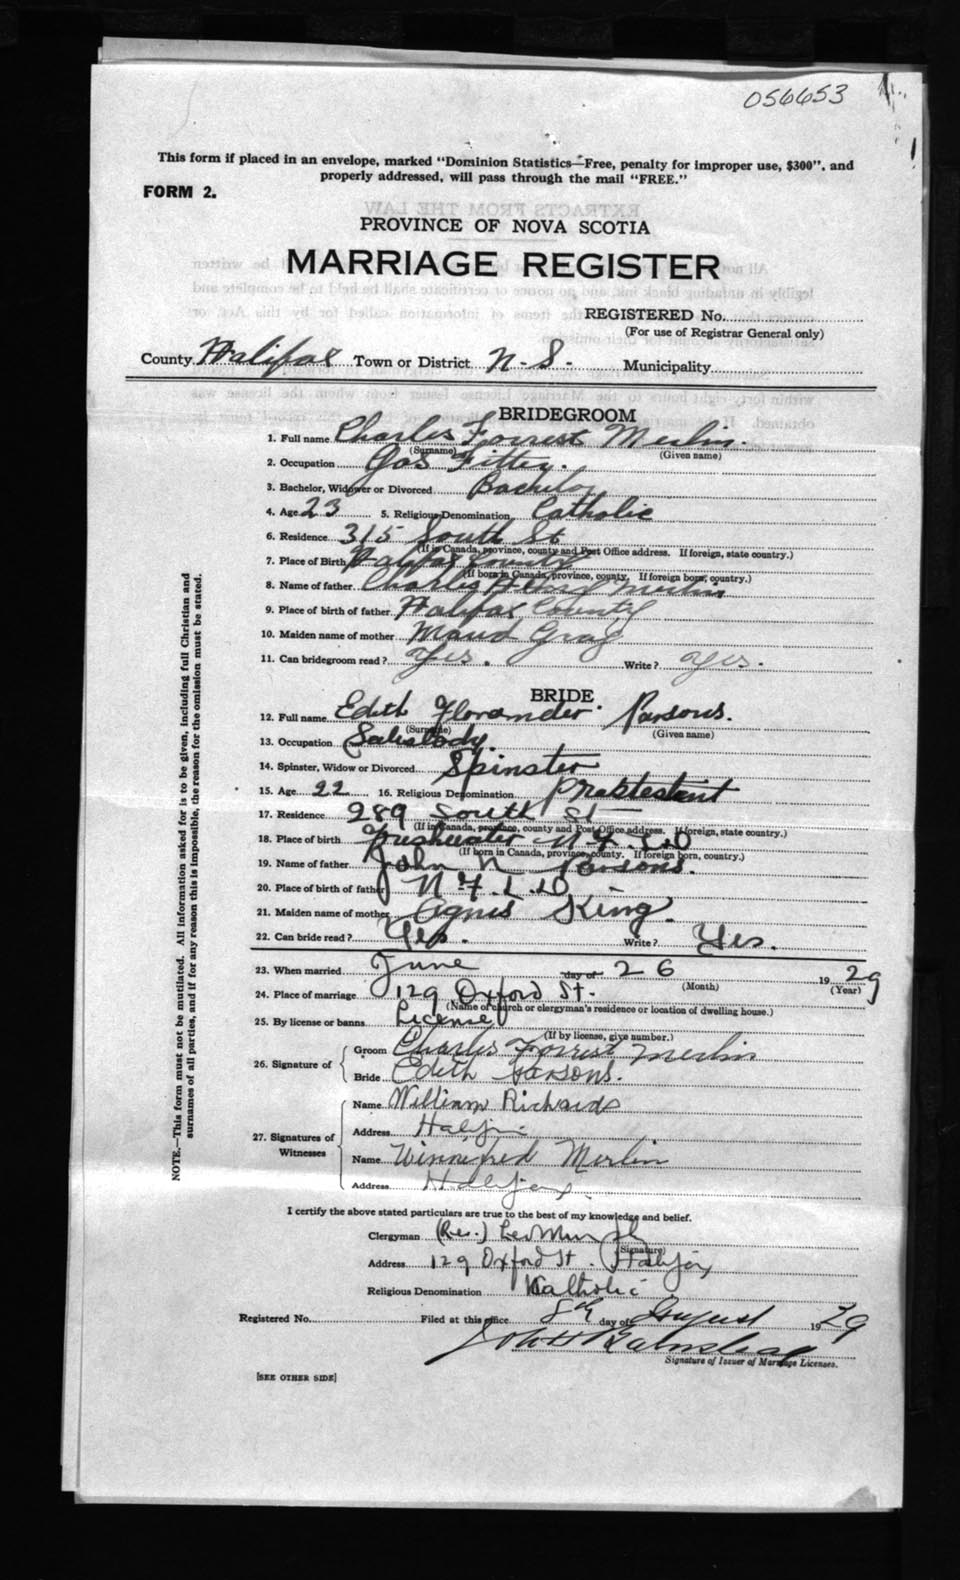 056653
This form if placed in an envelope, marked "Dominion Statistics—Free, penalty for improper use, $300", and
properly addressed, will pass through the mail "FREE."
FORM 2.
PROVINCE OF NOVA SCOTIA
MARRIAGE REGISTER
REGISTERED No.
(For use of Registrar General only)
County Halifax Town or District N. S. Municipality
BRIDEGROOM
1. Full name Charles Forrest Merlin.
(Surname) (Given name)
2. Occupation Gas Fitter.
3. Bachelor, Widower or Divorced Bachelor
4. Age 23 5. Religious Denomination Catholic
6. Residence 315 South St
(If in Canada, province, county and Post Office address. If foreign, state country.)
7. Place of Birth Halifax County
(If born in Canada, province, county. If foreign born, country.)
8. Name of father Charles Henry Merlin
9. Place of birth of father Halifax County
10. Maiden name of mother Maud Gray
11. Can bridegroom read? Yes. Write? Yes.
BRIDE.
12. Full name Edith Parsons.
(Surname) (Given name)
13. Occupation Saleslady.
14. Spinster, Widow or Divorced Spinster
15. Age 22 16. Religious Denomination Prostestant
17. Residence 289 South St
(If in Canada, province, county and Post Office address. If foreign, state country.)
18. Place of birth Freshwater N.F.L.D
(If born in Canada, province, county. If foreign born, country.)
19. Name of father John N Parsons.
20. Place of birth of father N.F.L.D
21. Maiden name of mother Agnes King.
22. Can bride read? Yes. Write? Yes.
23. When married June day of 26 1929
(Month) (Year)
24. Place of marriage 129 Oxford St.
(Name of church or clergyman's residence or location of dwelling house.)
25. By license or banns License
(If by license, give number.)
26. Signature of
Groom Charles Forrest Merlin
Bride Edith Parsons.
27. Signatures of Witnesses
Name William Richards
Address Halifax
Name Winnifred Merlin
Address Halifax.
I certify the above stated particulars are true to the best of my knowledge and belief.
Clergyman (Rev.) Leo Murphy
(Signature)
Address 129 Oxford St. Halifax
Religious Denomination Catholic
Registered No. Filed at this office 8th day of August 1929
Signature of Issuer of Marriage Licenses.
[SEE OTHER SIDE]
NOTE.—This form must not be mutilated. All information asked for is to be given, including full Christian and
surnames of all parties, and if for any reason this is impossible, the reason for the omission must be stated.